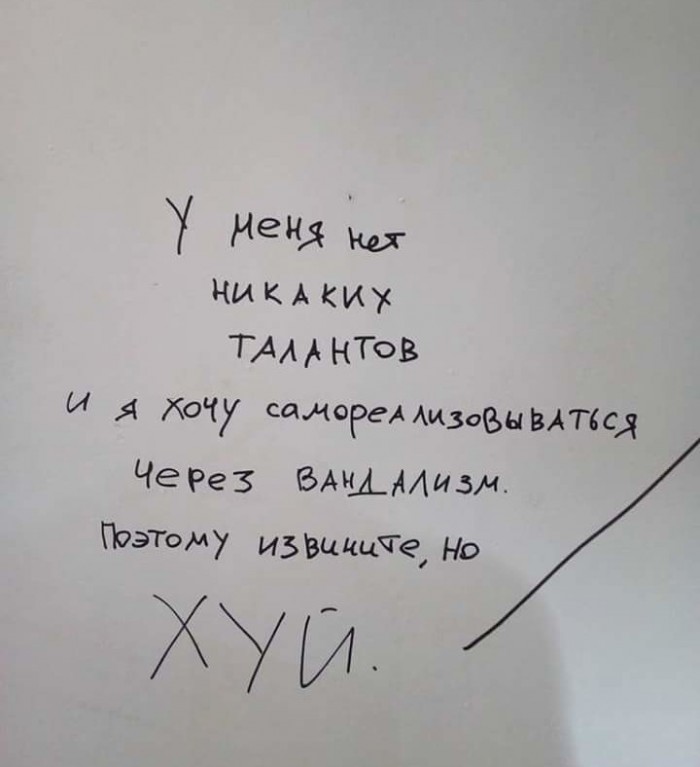 У меня нет
НИКАКИХ
ТАЛАНТОВ
и я хочу самореализовываться
через вандализм.
Поэтому извините, но
ХУЙ.